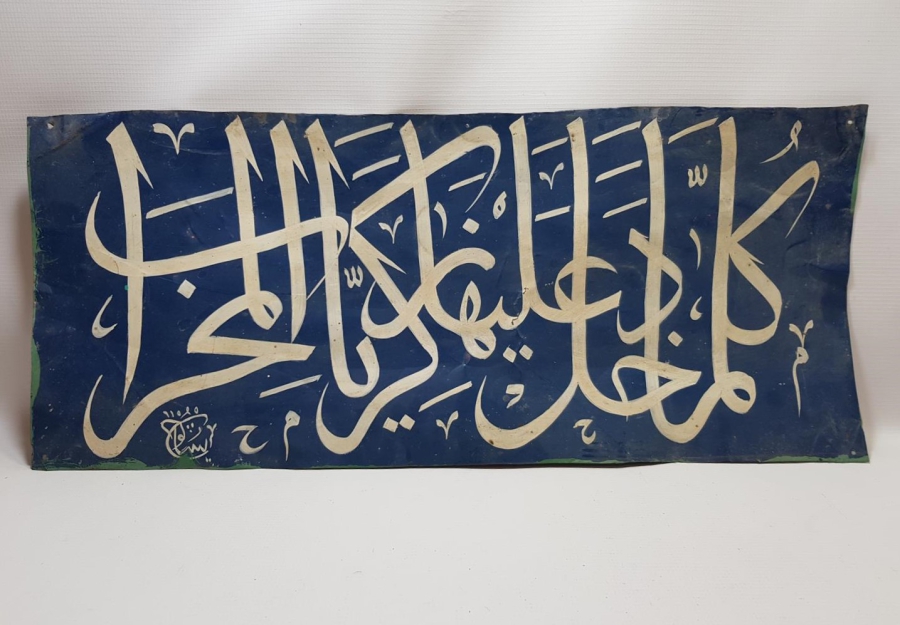 كلما دخل عليها زكريا المحراب